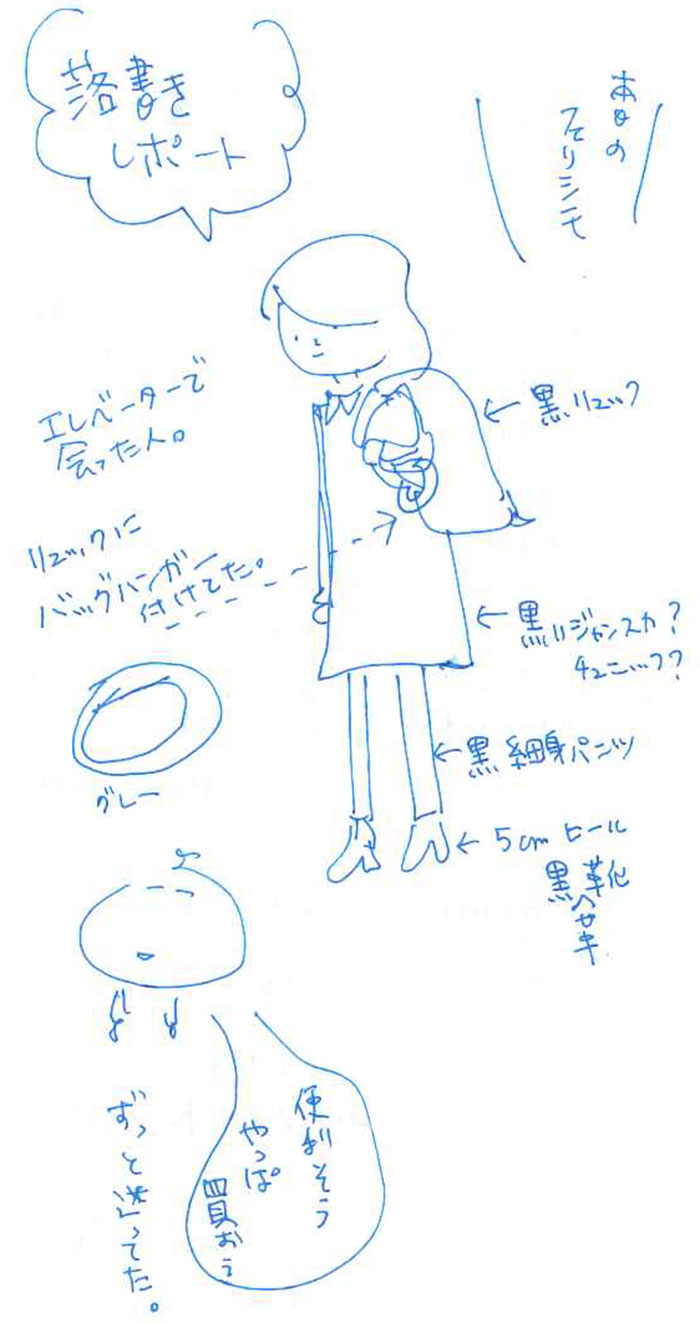 落書き
レポート
本日の
フェリシモ
エレベーターで
会った人。
リュックに
バッグハンガー
付けてた。
グレー
←黒リュック
←黒ジャンスカ?
チュニック?
←黒細身パンツ
←5cmヒール
黒靴
便利そう
やっぱ
買おう
ずっと迷ってた。